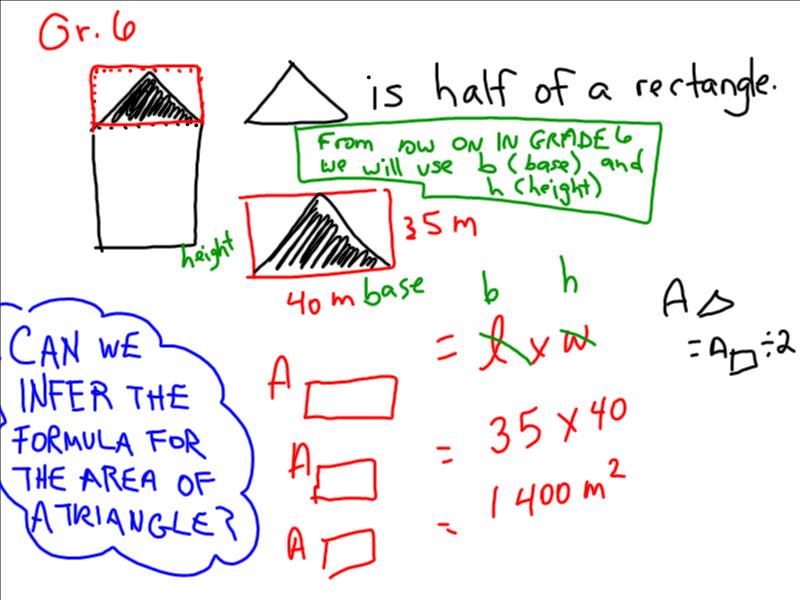 Gr. 6
is half of a rectangle.
From now ON IN GRADE 6
we will use b (base) and
h (height)
35 m
height
40 m base
b h
A = l x w
A = 35 x 40
A = 1400 m²
A
= A ÷ 2
CAN WE
INFER THE
FORMULA FOR
THE AREA OF
A TRIANGLE?